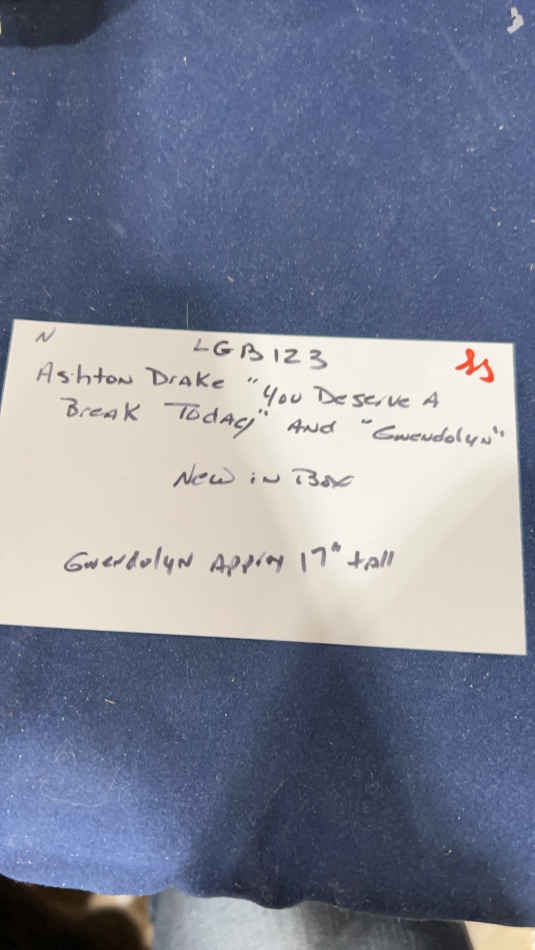 N
LGB123
Ashton Drake "You Deserve A
Break Today" And "Gwendolyn"
New in Box
Gwendolyn Approx 17" tall